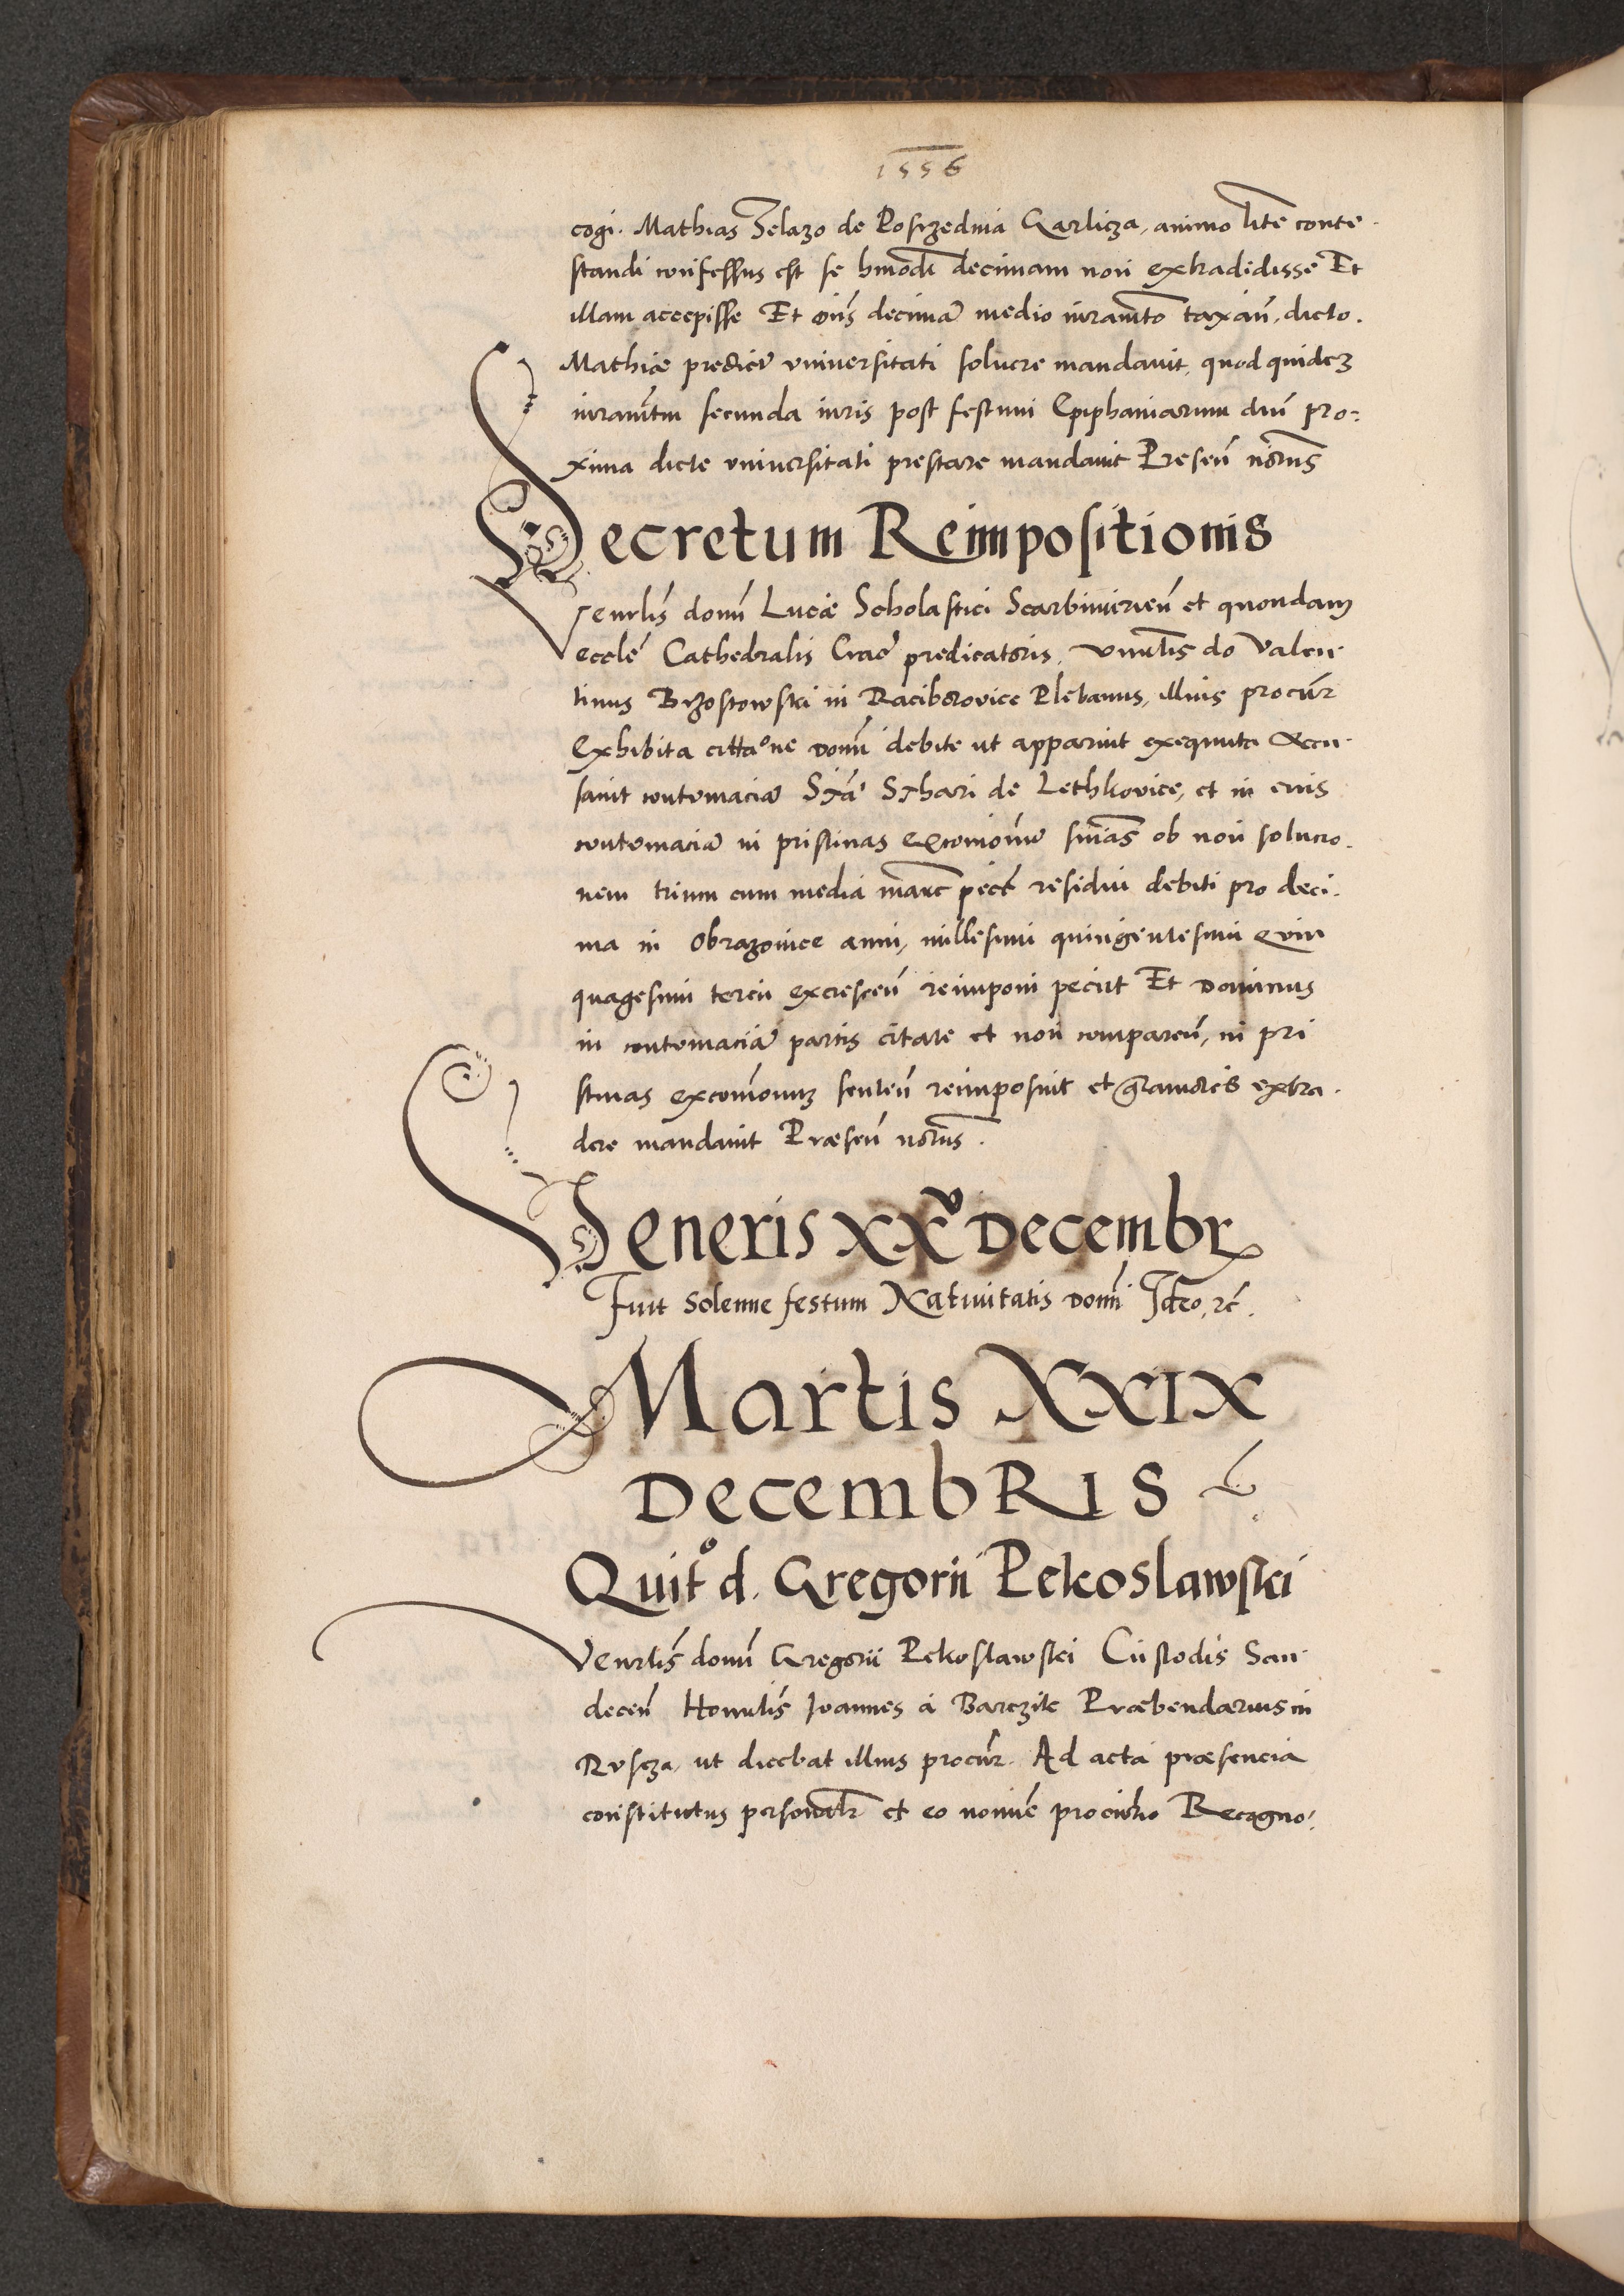 1556
cogi. Mathias Zelazo de Posrzednia Garlicza, animo litē conte
standi confessus est se hmōdi decimam non extradidisse Et
illam accepisse Et oīns decimā medio iuramto taxān, dicto.
Mathiæ predictę universitati solvere mandavit, quod quidez
iuramtm secunda iuris post festum Epiphaniarum dnī pro:
xima dicte universitati prestare mandavit Presen̄ notus
Decretum Reimpositionis
Venrlis̄ domī Lucæ Scholastici Scarbimirien̄ et quondam
eccle̅ Cathedralis Crac̅ predicatoris, Vnrlis do Valen
tinus Brzostowski in Raciborovice Plebanus, illius procur̄
Exhibita citta°ne Domī debite ut apparuit exequuta Accu
savit contumaciā Stā Sthari de Lethkovice, et in eius
contumaciā in pristinas excomōnis snīas ob non solucio.
nem trium cum media marc pecc̅ residui debiti pro deci.
ma in Obrazovice anni, millesimi quingentesimi quin
quagesimi tercii excrescen̄ reimponi peciit Et Dominus
in contumaciā partis citate et non comparen̄, in pri
stinas excomōnis senten̄ reimposuit et gravatorias extra.
dere mandavit Præsen̄ notus.
Veneris XXV Decembr
Fuit Solenne festum Nativitatis Domī Ideo, rc̄.
Martis XXIX
DecembRIS
Quit° d. Gregorii Pekoslawski
Venrlis̄ domī Gregorii Pekoslawski Custodis San
decen̄ Honrlis̄ Joannes à Barczik Præbendarius in
Rvscza, ut dicebat illius procūr. Ad acta præsencia
constitutus personalr̄ et eo nomine procurio Recogno: